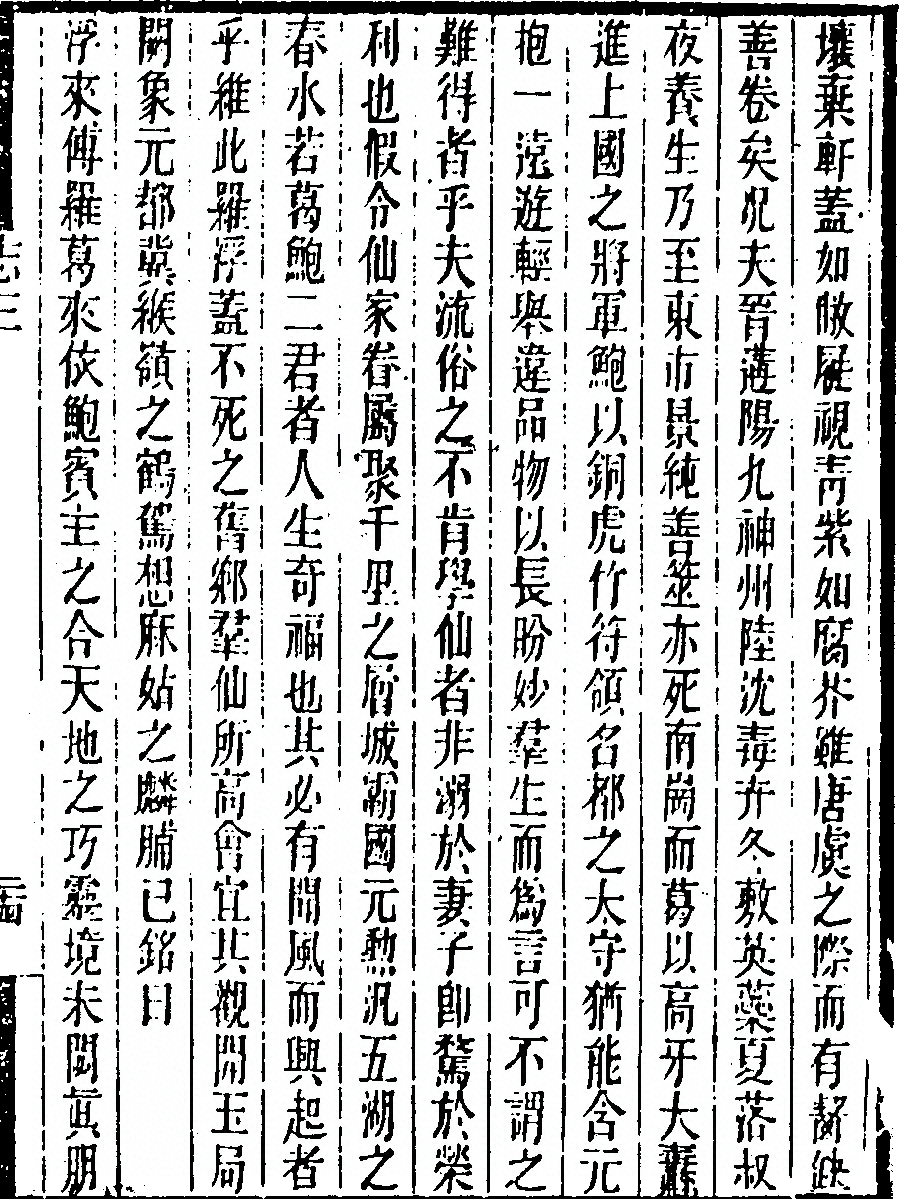 壤棄軒蓋如敝屣視靑紫如腐芥雖唐虞之際而有齧缺
善卷矣况夫晉遘陽九神州陸沈毒卉冬敷英蘂夏落叔
夜養生乃至東市景純善筮亦死南崗而葛以高牙大纛
進上國之將軍鮑以銅虎竹符領名都之太守猶能含元
抱一遠遊輕舉違品物以長盼妙羣生而爲言可不謂之
難得者乎夫流俗之不肯學仙者非溺於妻子卽騖於榮
利也假令仙家眷屬聚千里之層城霸國元勲汎五湖之
春水若葛鮑二君者人生奇福也其必有聞風而興起者
乎維此羅浮蓋不死之舊鄉羣仙所高會宜其觀開玉局
闕象元都冀緱嶺之鶴駕想麻姑之麟脯已銘曰
浮來傅羅葛來依鮑賓主之合天地之巧靈境未閟眞朋
志三